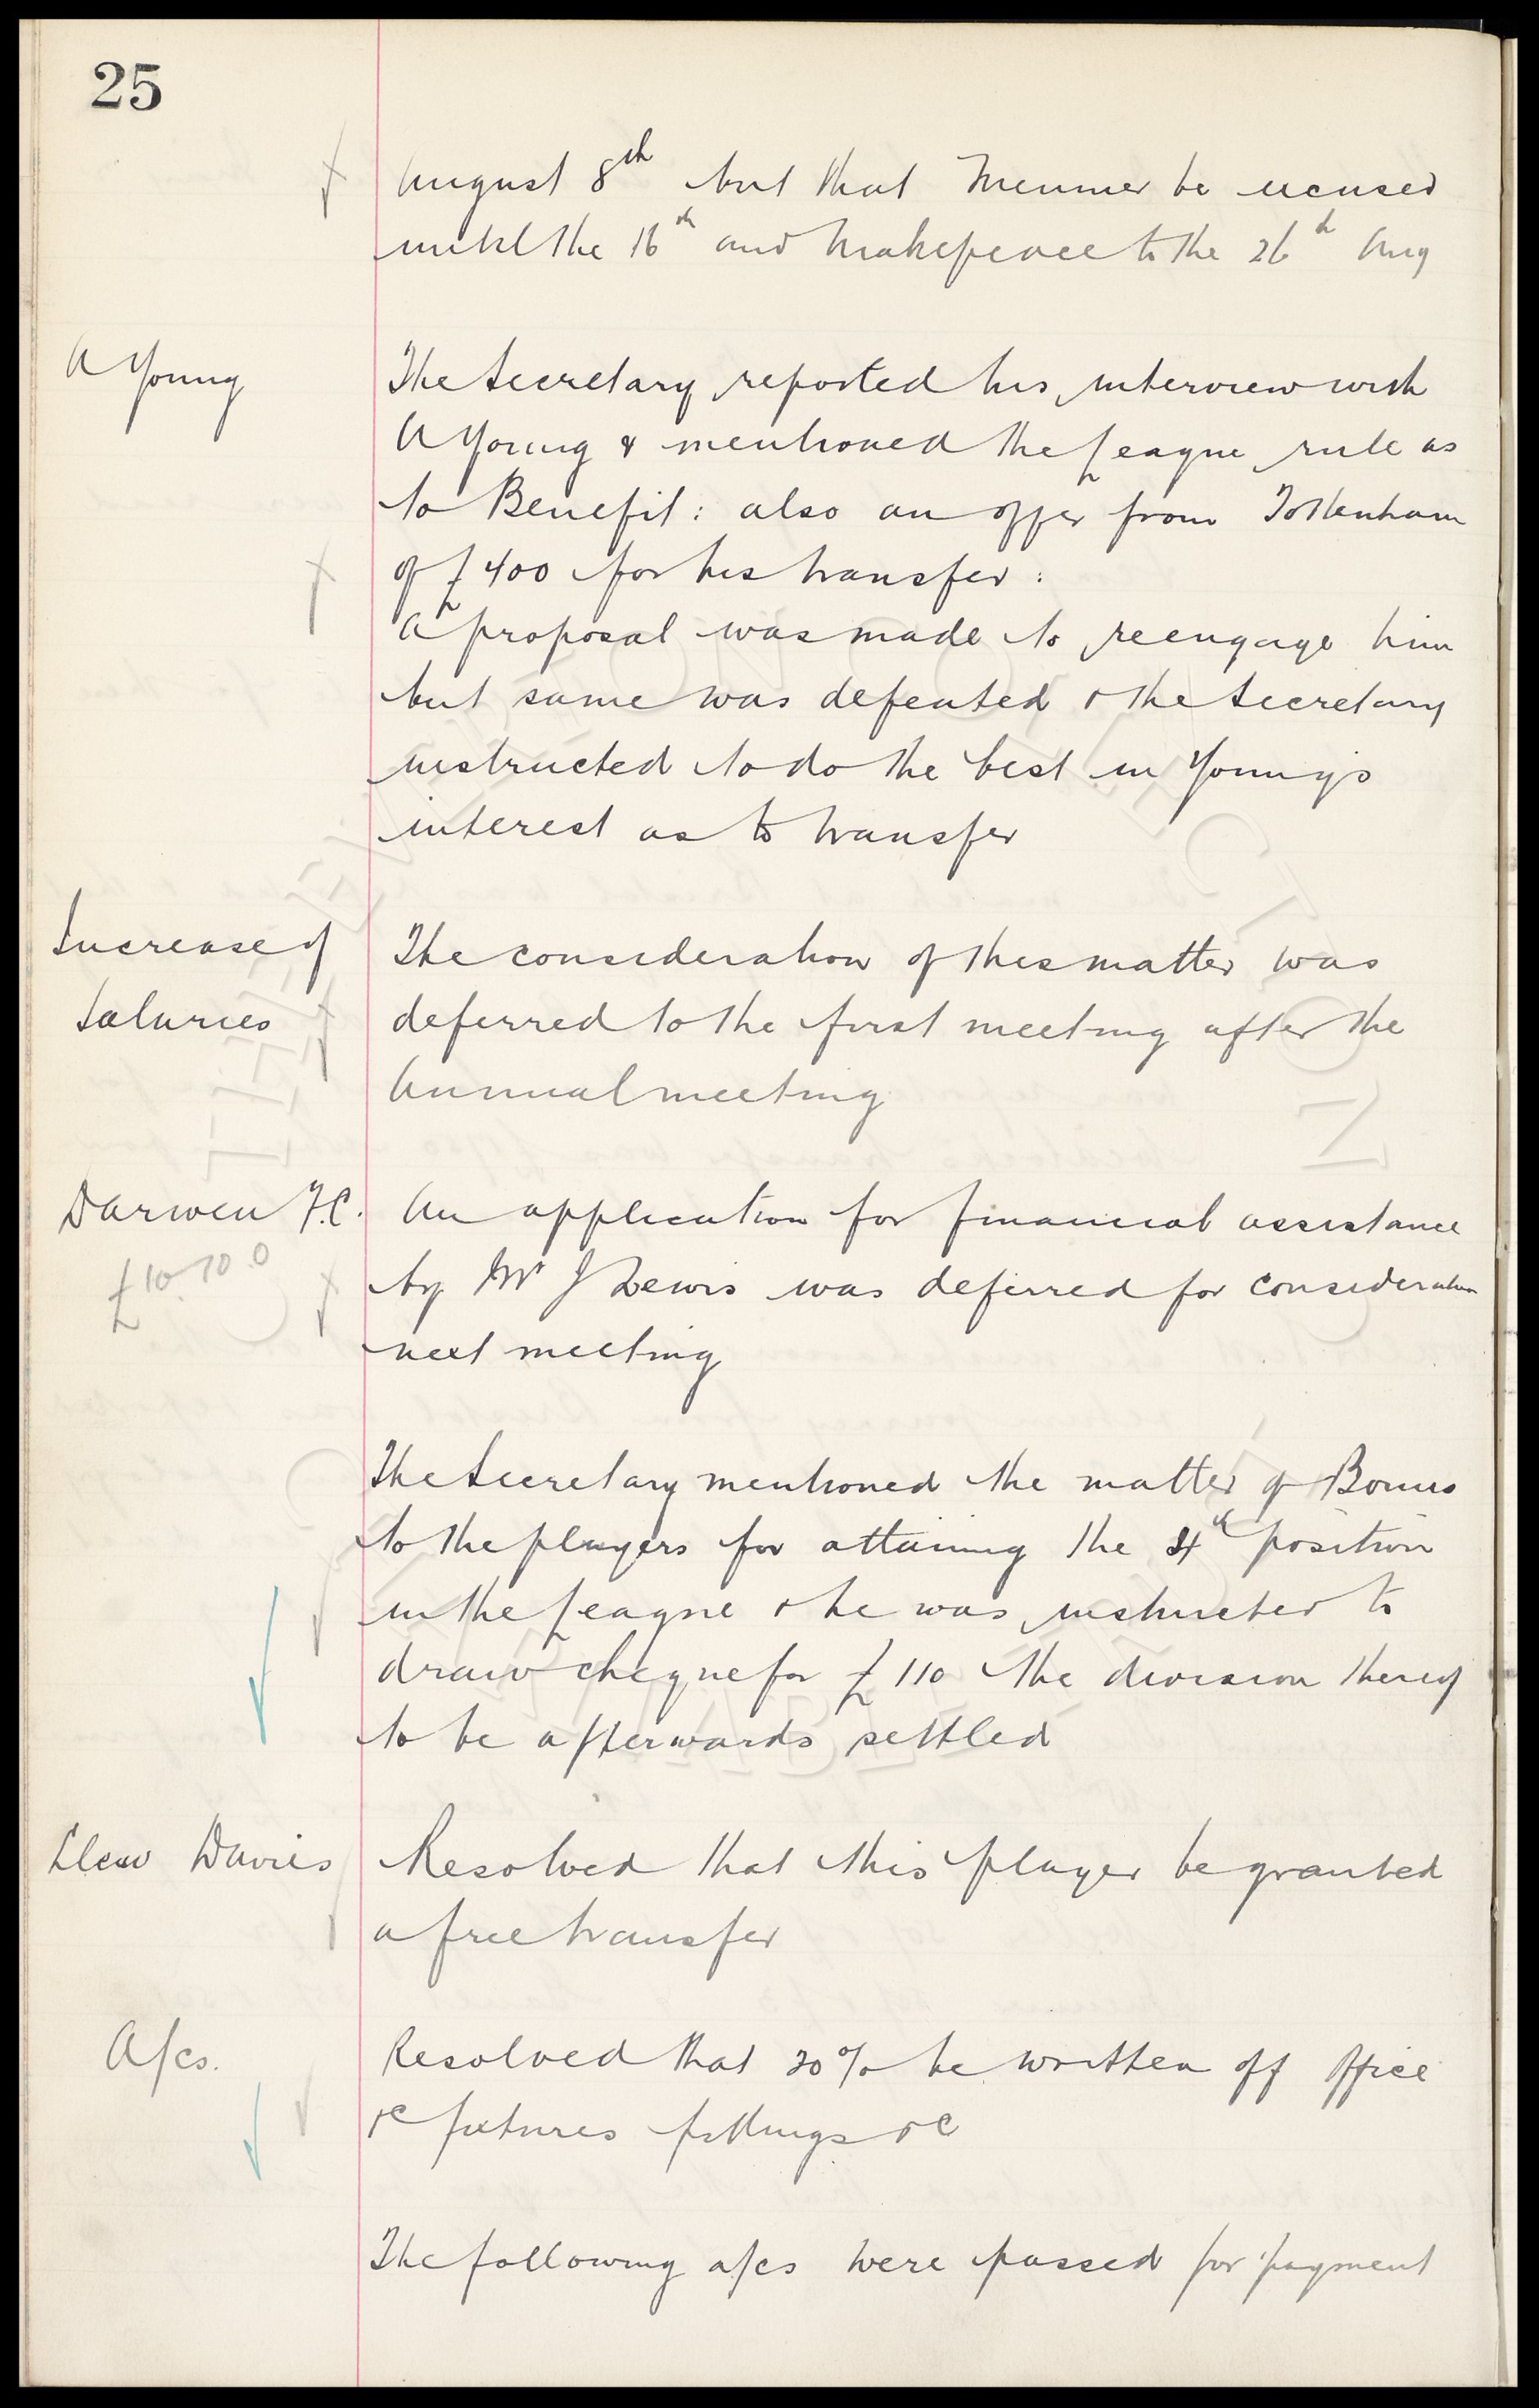 25
August 8th but that Meunier be excused
until the 16th and Makepeace to the 26th Aug
A Young
The Secretary reported his interview with
A Young & mentioned the League rule as
to Benefit: also an offer from Tottenham
of £400 for his transfer:
A proposal was made to reengage him
but same was defeated & the Secretary
instructed to do the best in Young's
interest as to transfer
Increase of
Salaries
The consideration of this matter was
deferred to the first meeting after the
Annual meeting
Darwen F.C.
£10.10.0
An application for financial assistance
by Mr J Lewis was deferred for consideration
next meeting
The Secretary mentioned the matter of Bonus
to the players for attaining the 4th position
in the League & he was instructed to
draw cheque for £110 the division thereof
to be afterwards settled
Llew Davies
Resolved that this player be granted
a free transfer
A/cs.
Resolved that 20% be written off Office
&c fixtures fittings &c
The following a/cs were passed for payment